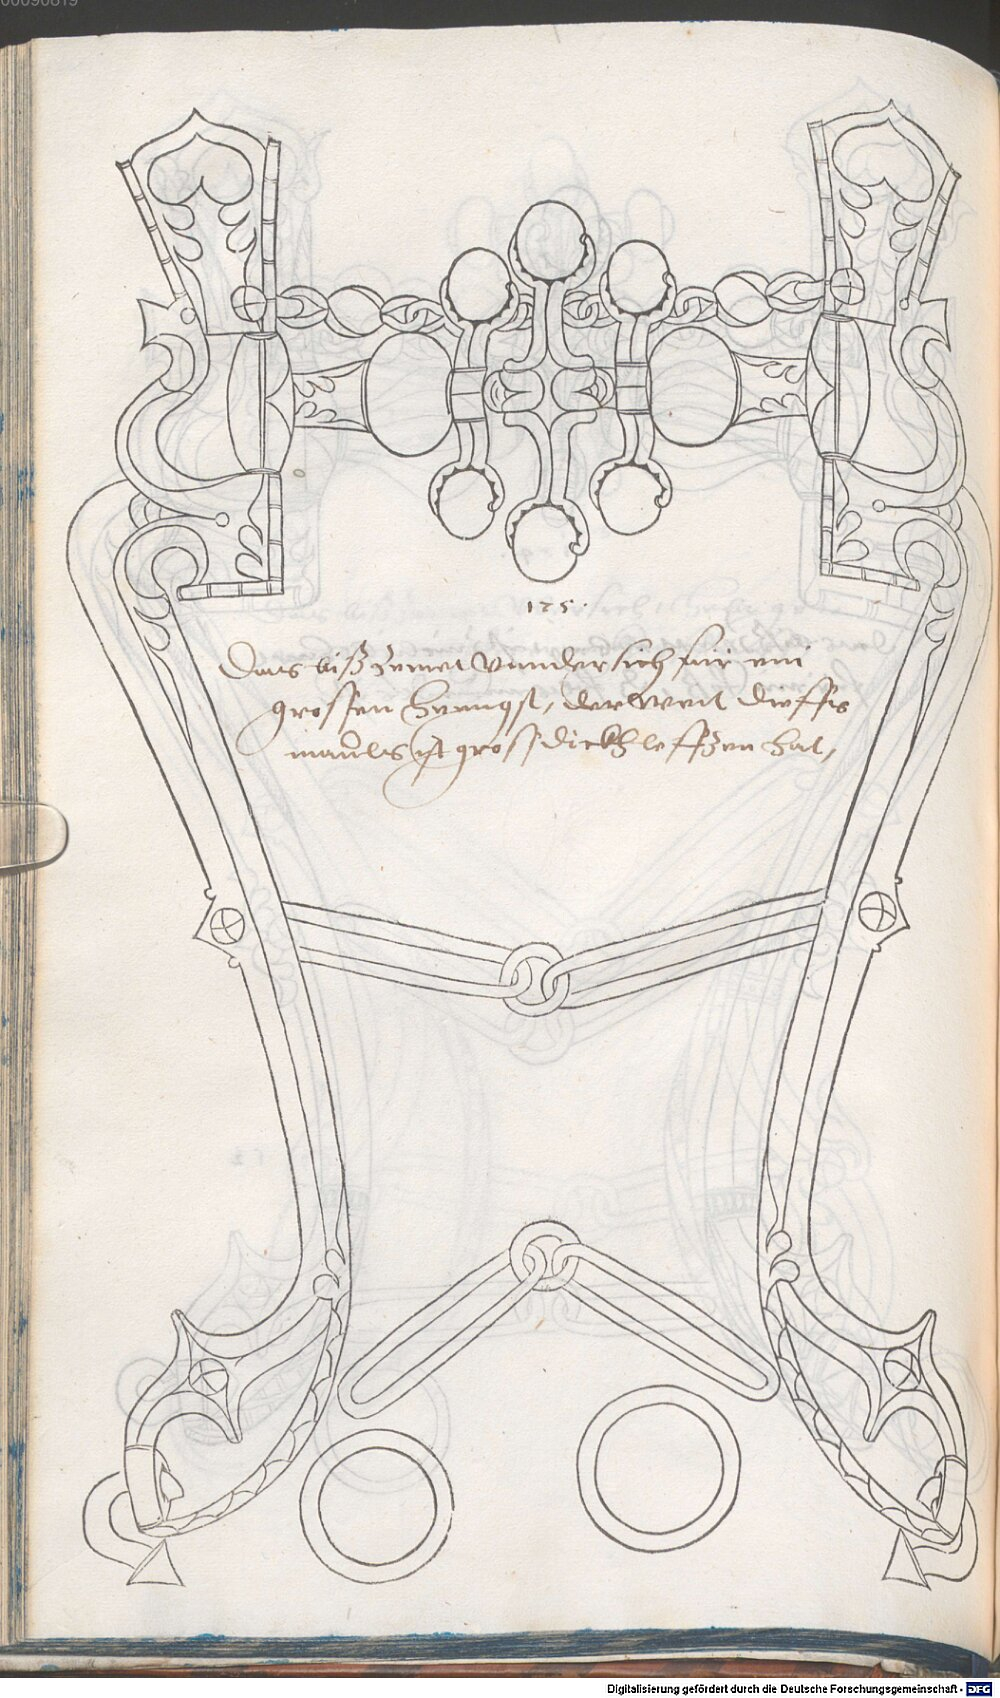 00090819
175.
Das biß zemet vnndersich für ein
grossen Henngst, der weit dieffs
mauls ist gross dickh leffzen hat,
Digitalisierung gefördert durch die Deutsche Forschungsgemeinschaft - DFG